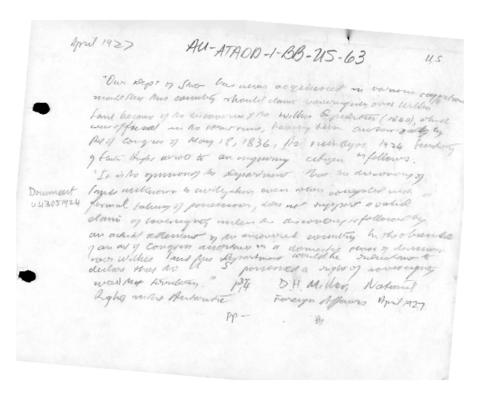 April 1927
AU-ATADD-1-BB-US-63
U.S
"Our Dept of State has never acquiesced in various suggestions
made that this country should claim sovereignty over Wilkes
Land because of the discoveries of the Wilkes Expedition (1840), which
was official in its character, having been authorized by
Act of Congress of May 18, 1836, for instance 1924 Secretary
of State Hughes wrote to an inquiring citizen as follows.
"It is the opinion of the Department that the discovery of
lands unknown to civilization even when coupled with a
formal taking of possession, does not support a valid
claim of sovereignty unless the discovery is followed by
an actual settlement of the discovered country. In the absence
of an act of Congress assertive in a domestic sense of dominion
over Wilkes Land this Department would be reluctant to
declare that the US possessed a right of sovereignty
over that territory." p514 D.H. Miller, National
Rights in the Antarctic Foreign Affairs April 1927
pp-
Document